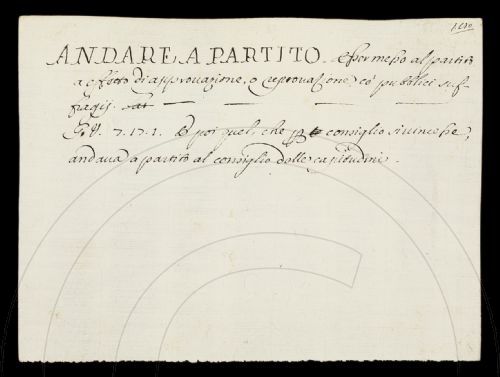 ANDARE A PARTITO. Esser messo al partito
a effetto di approvazione, o reprovazione co' pubblici suf-
fragij.
G.V. 7.17.1. E poi quel, che consiglio si vincesse,
andava a partito al consiglio delle capitudini.